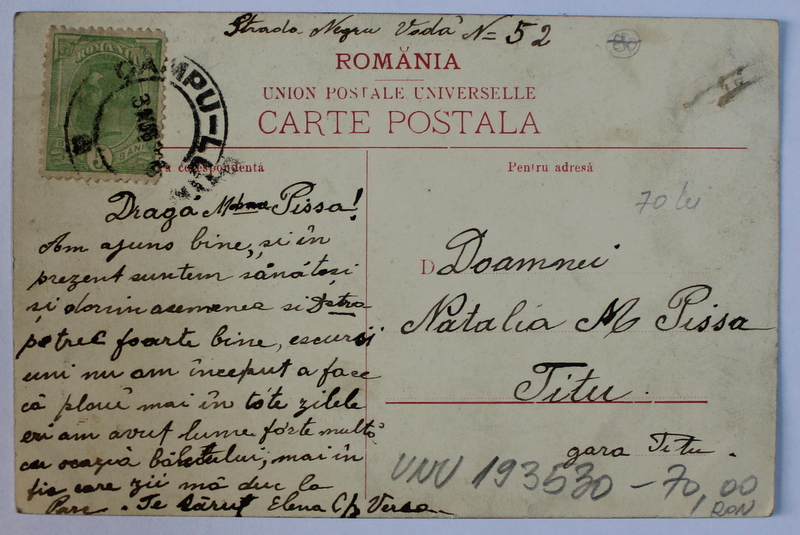 Strada Negru Vodă N= 52
ROMÂNIA
5 BANI
CAMPU-LUNG
ROMÂNIA
UNION POSTALE UNIVERSELLE
CARTE POSTALA
corespondentă
Pentru adresă
70 lei
Draga Mme Pissa!
Am ajuns bine, și în
prezent suntem sănătoși
și dorim asemenea si Dstra
petrec foarte bine, escursi
uni nu am început a face
că plouĕ mai în tóte zilele
eri am avut lume fórte multă
cu ocazia bâlciului, mai în
fie care zii mă duc la
Parc. Te sărut Elena
D Doamnei
Natalia M Pissa
Titu.
gara Titu.
VNV 193530 - 70,00
RON